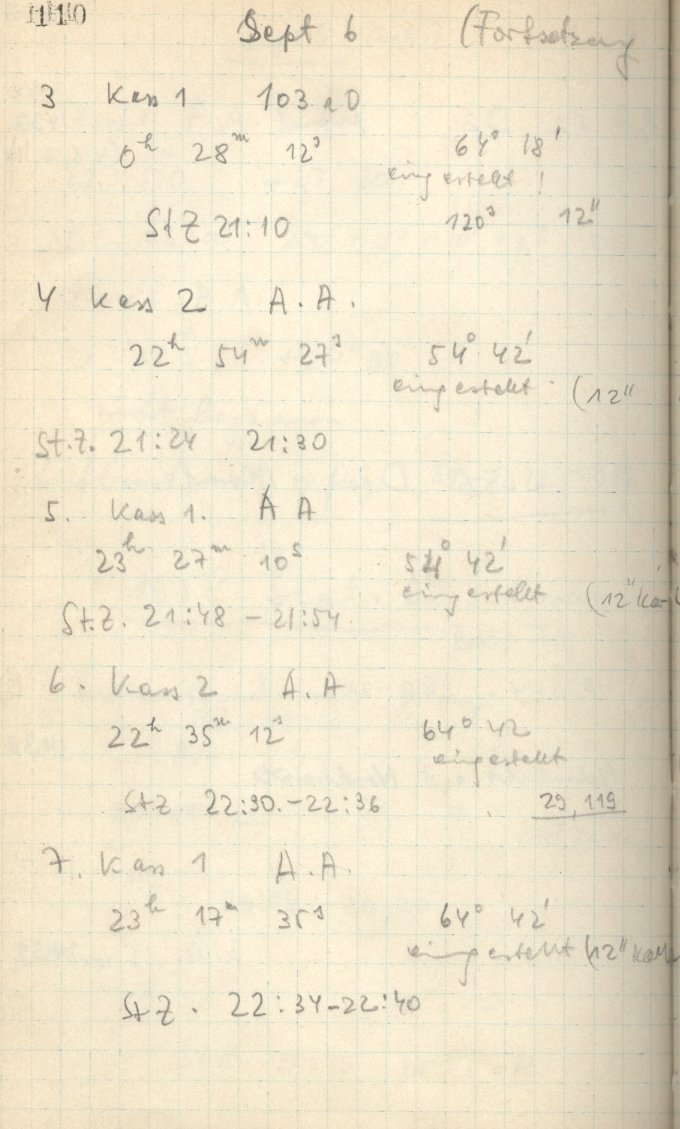 110
Sept 6 (Fortsetzung
3 Kass 1 103 aO
0h 28m 12s 64° 18'
eingestellt !
St Z 21:10 120s 12"
4 Kass 2 A. A.
22h 54m 27s 54° 42'
eingestellt (12"
St.Z. 21:24 21:30
5. Kass 1. A A
23h 27m 10s 54° 42'
eingestellt (12" Kar
St.Z. 21:48 - 21:54
6. Kass 2 A. A
22h 35m 12s 64° 42
eingestellt
St Z 22:30.-22:36 29,119
7. Kass 1 A. A.
23h 17m 35s 64° 42'
eingestellt (12"
St Z. 22:34-22:40